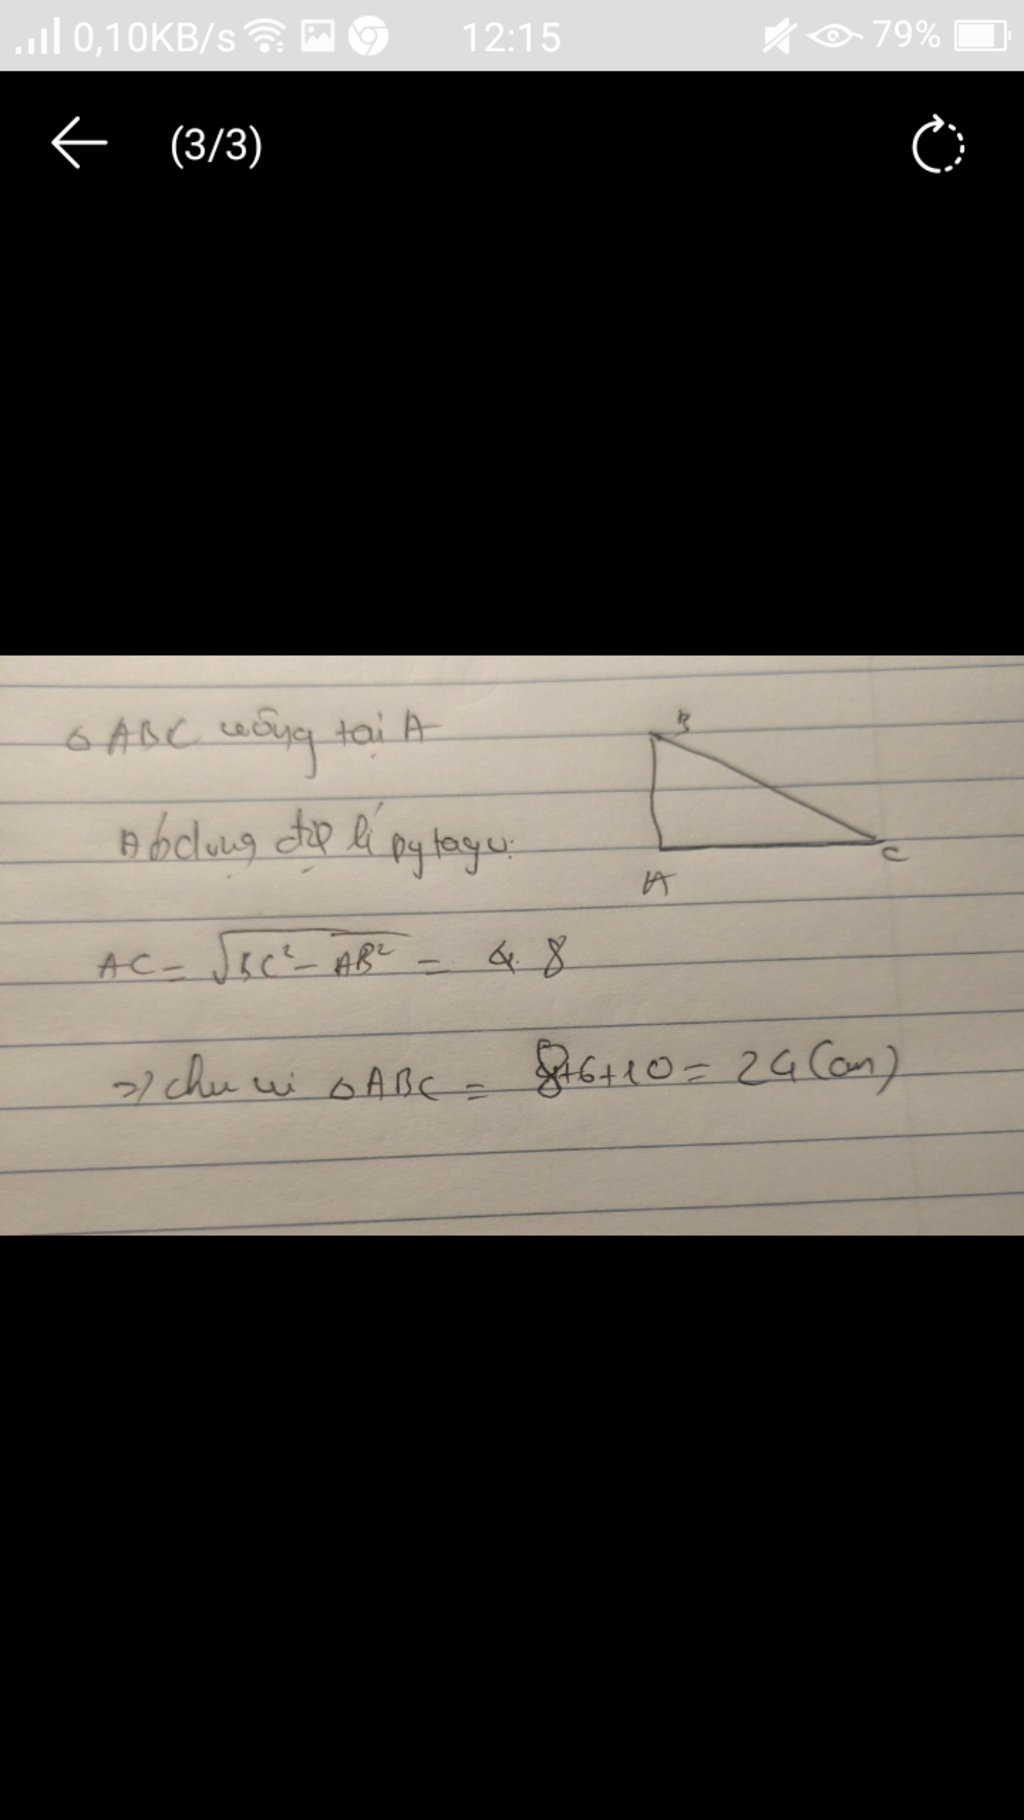 0,10KB/s 12:15 79%
(3/3)
Δ ABC vuông tại A
B
Ábdụng địp lí pytagu:
C
A
AC = √BC² - AB² = 8
=> chu vi Δ ABC = 8+6+10 = 24 (cm)